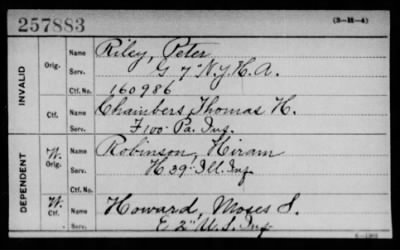 257883
(3-M-4)
INVALID
Orig.
Name
Riley, Peter
Serv.
G 7" N.Y.H.A.
Ctf. No.
160986
Ctf.
Name
Chambers, Thomas H.
Serv.
F 100 Pa. Inf.
DEPENDENT
W.
Orig.
Name
Robinson, Hiram
Serv.
H 39" Ill. Inf
Ctf. No.
W.
Ctf.
Name
Howard, Moses S.
Serv.
E 2" U.S. Inf